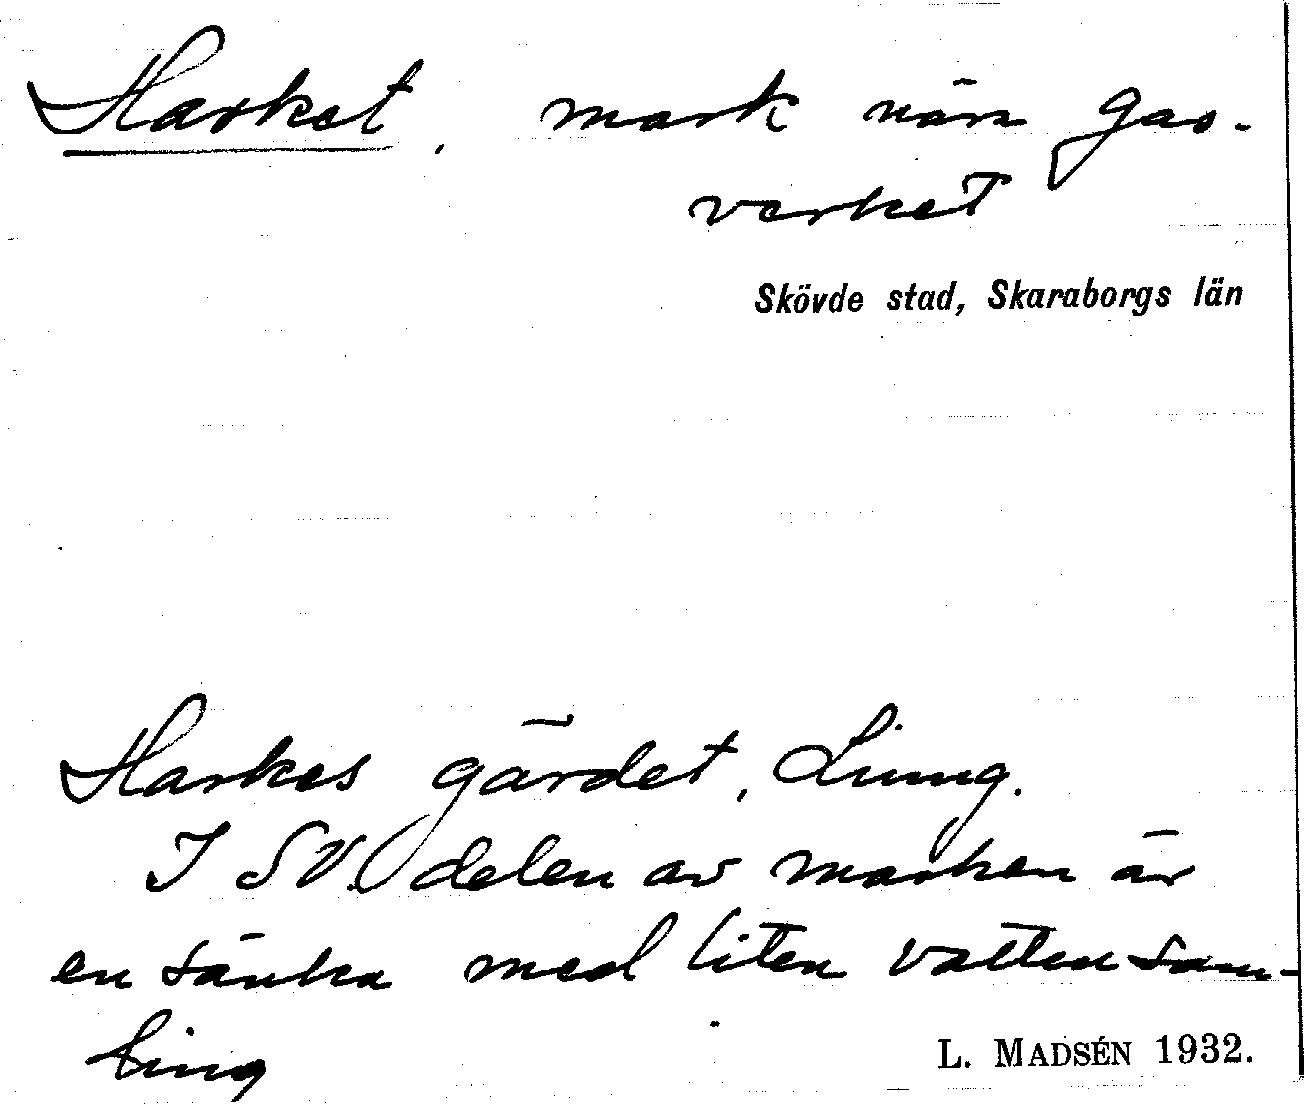 Harket, mark nära gas-
verket
Skövde stad, Skaraborgs län
Harkes gärdet, Ljung.
I SV. delen av marken är
en sänka med liten vattensam-
ling
L. MADSÉN 1932.